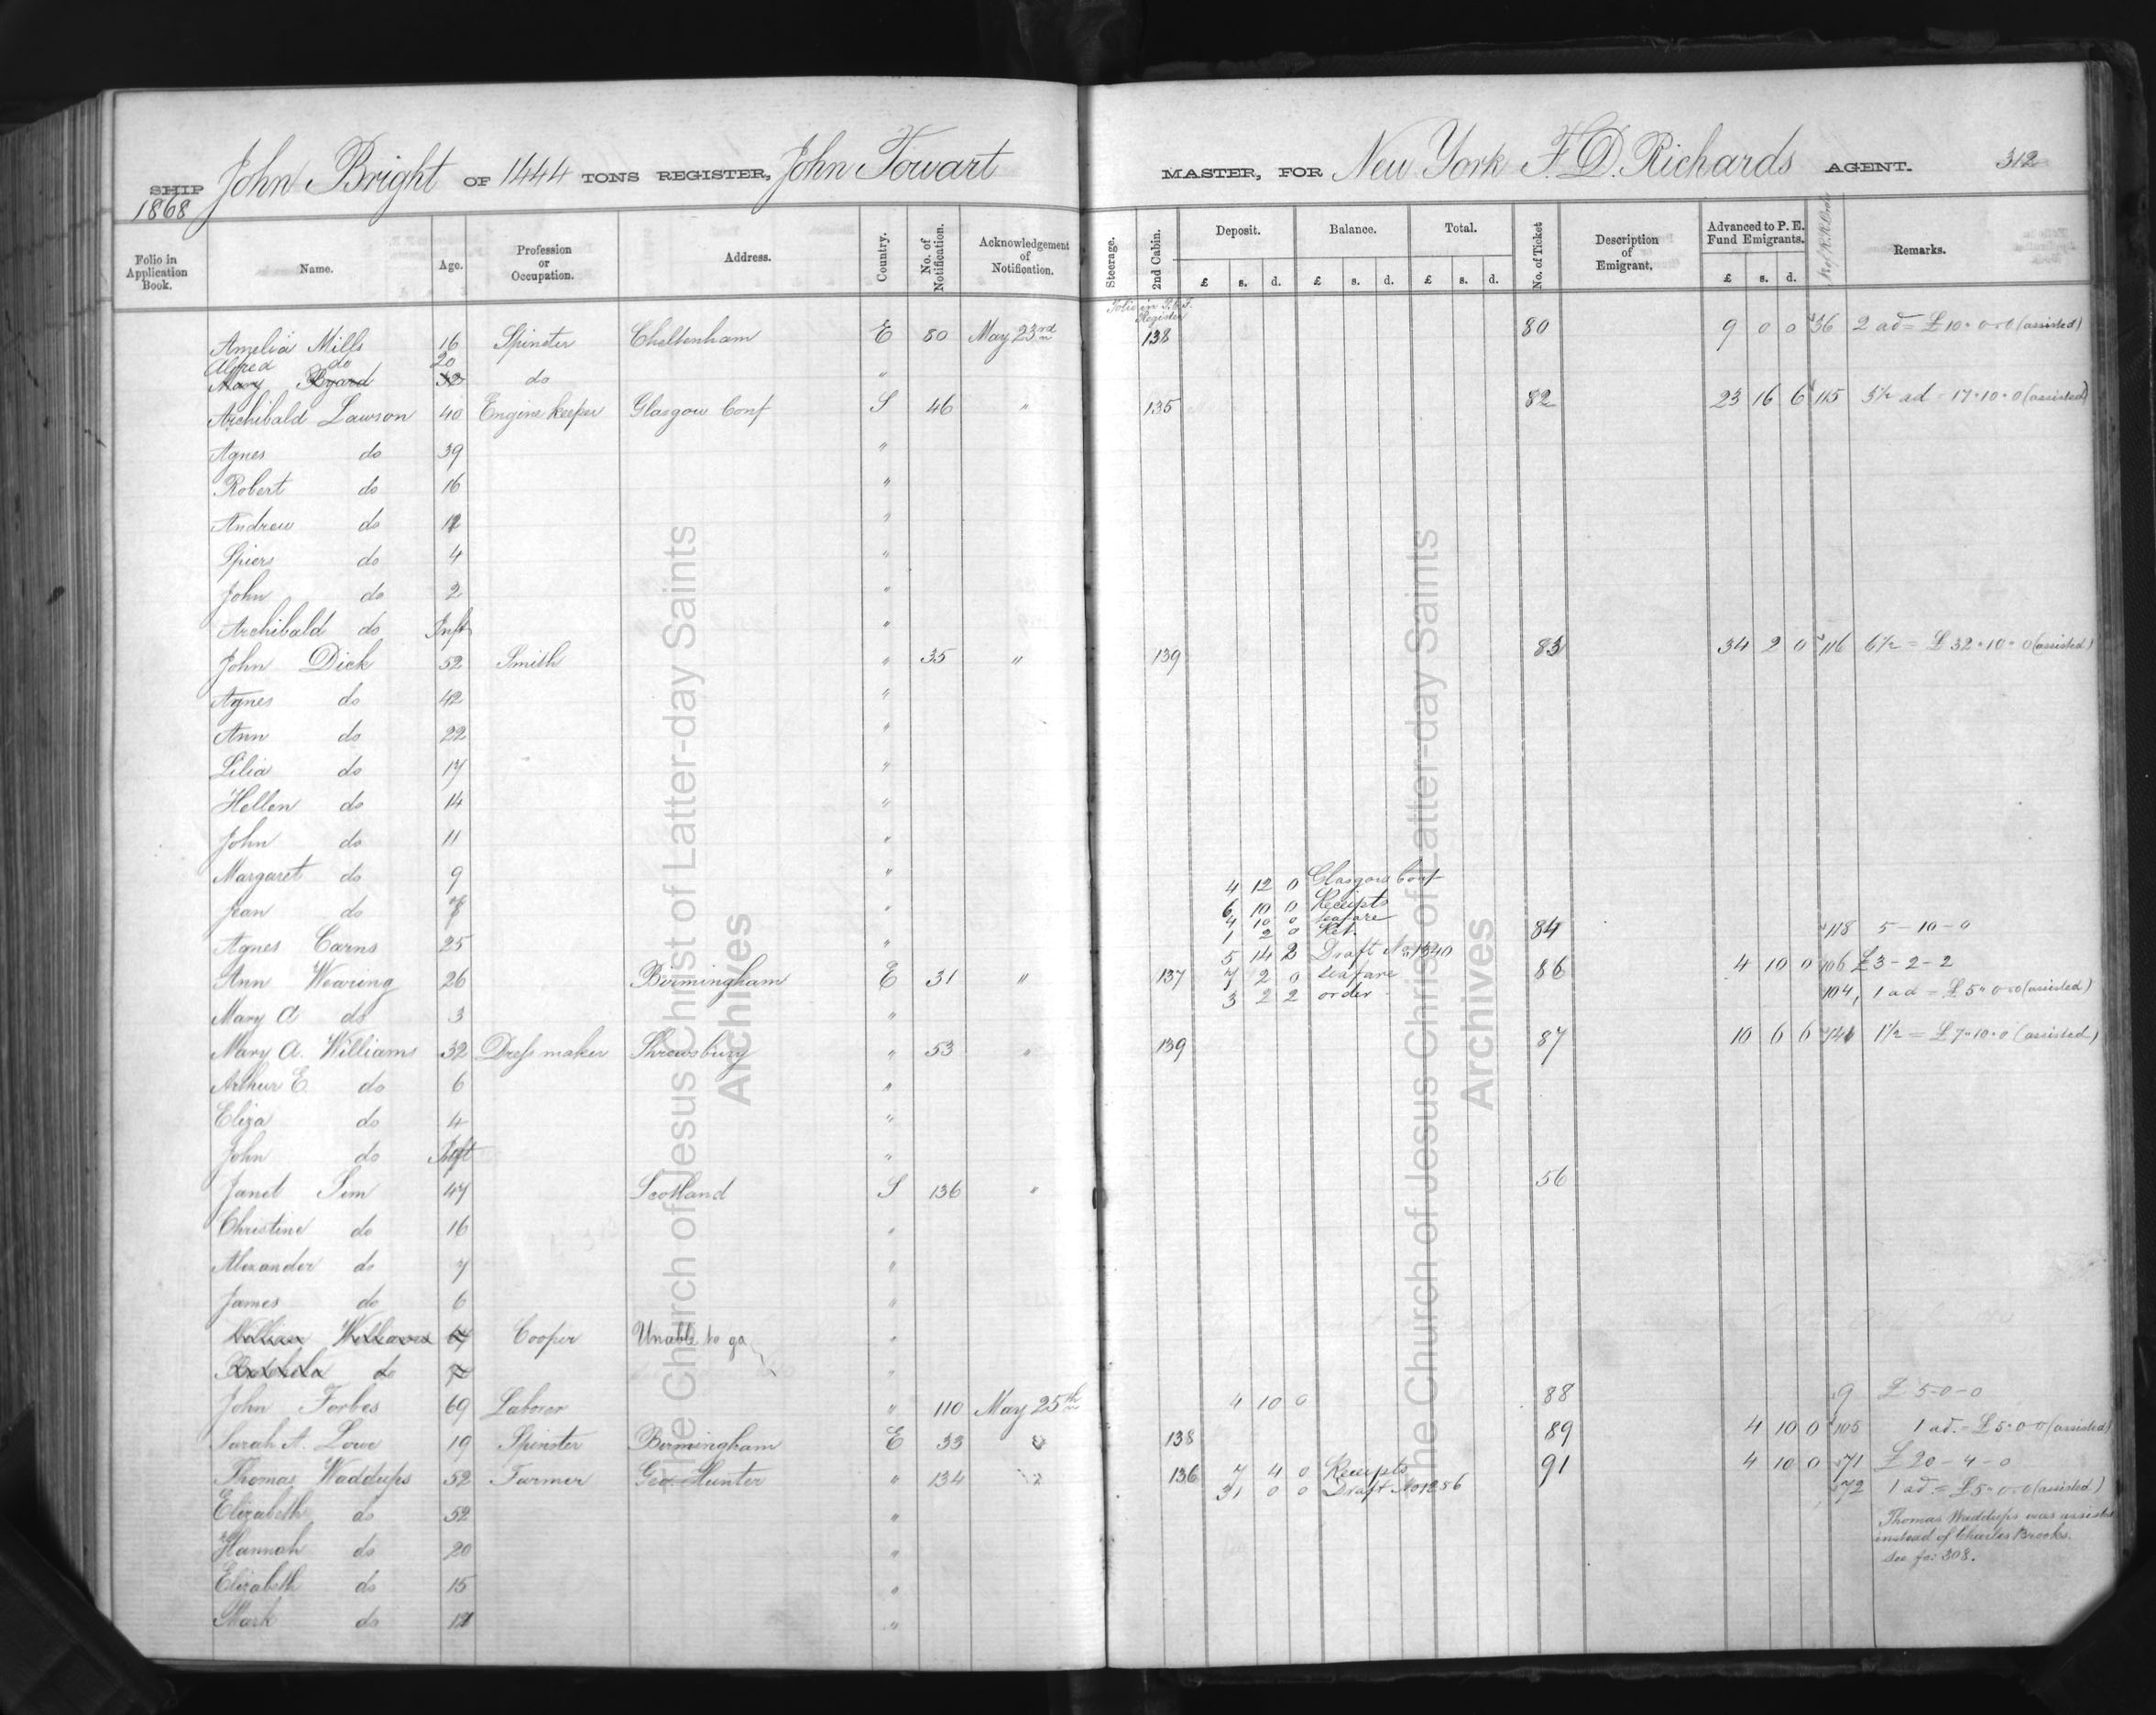 SHIP John Bright OF 1444 TONS REGISTER, John Towart MASTER, FOR New York F. D. Richards AGENT. 312
1868
Folio in Application Book. Name. Age. Profession or Occupation. Address. Country. No. of Notification. Acknowledgement of Notification. Steerage. 2nd Cabin. Deposit. Balance. Total. No. of Ticket Description of Emigrant. Advanced to P. E. Fund Emigrants. Remarks.
£ s. d. £ s. d. £ s. d. £ s. d.
Folio in P.E.F. Register
Amelia Mills 16 Spinster Cheltenham E 80 May 23rd 138 80 9 0 0 36 2 ad = £10-0-0 (assisted)
Alfred do 20
Mary 32 do "
Archibald Lawson 40 Engine keeper Glasgow Conf S 46 " 135 82 23 16 6 115 3½ ad = 17-10-0 (assisted)
Agnes do 39 "
Robert do 16 "
Andrew do "
Spiers do 4 "
John do 2 "
Archibald do Inft "
John Dick 52 Smith " 35 " 139 83 34 2 0 116 6½ = £32-10-0 (assisted)
Agnes do 42 "
Ann do 22 "
Lilia do 17 "
Hellen do 14 "
John do 11 "
Margaret do 9 " 4 12 0 Glasgow Conf
Jean do " 6 10 0 Receipts
4 10 0 Seafare
Agnes Carns 25 " 1 2 0 Ret. 84 118 5-10-0
5 14 2 Draft No 1340
Ann Wearing 26 Birmingham E 31 " 137 7 2 0 Seafare 86 4 10 0 106 £3-2-2
3 2 2 order 104, 1 ad = £5-0-0 (assisted)
Mary A do 3 "
Mary A. Williams 32 Dress maker Shrewsbury " 53 " 139 87 10 6 6 1½ = £7-10-0 (assisted)
Arthur E. do 6 "
Eliza do 4 "
John do Inft "
Janet Sim 47 Scotland S 136 " 56
Christine do 16 "
Alexander do 7 "
James do 6 "
William Williams 64 Cooper Unable to go "
do "
John Forbes 69 Laborer " 110 May 25th 4 10 0 88 9 £5-0-0
Sarah A. Lowe 19 Spinster Birmingham E 33 " 138 89 4 10 0 105 1 ad. = £5-0-0 (assisted)
Thomas Waddups 52 Farmer Geo. Hunter " 134 " 136 7 4 0 Receipts 91 4 10 0 71 £20-4-0
31 0 0 Draft No 1256 72 1 ad = £5-0-0 (assisted)
Elizabeth do 52 " Thomas Waddups was assisted
instead of Charles Brooks.
Hannah do 20 " See fo: 308.
Elizabeth do 15 "
Mark do "
The Church of Jesus Christ of Latter-day Saints
Archives
The Church of Jesus Christ of Latter-day Saints
Archives